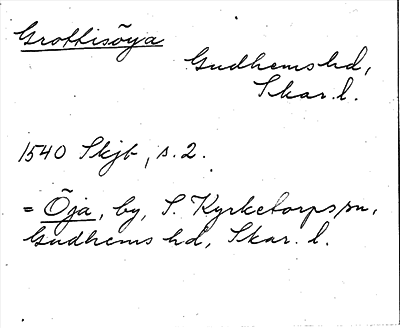 Grottisöya
Gudhems hd,
Skar. l.
1540 Skjb, s. 2.
= Öja, by, S. Kyrketorps sn,
Gudhems hd, Skar. l.